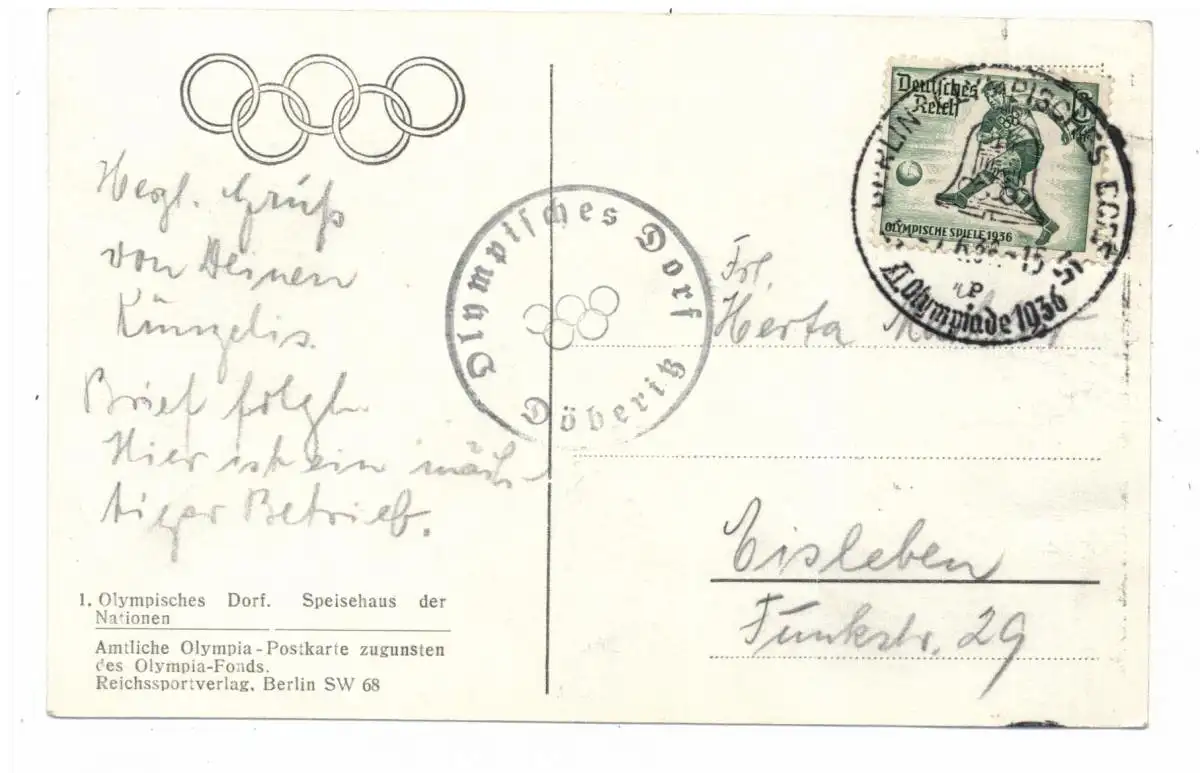 Herzl. Grüß
von Deinen
Künzelis.
Brief folgt.
Hier ist ein mäch-
tiger Betrieb.
1. Olympisches Dorf. Speisehaus der
Nationen
Amtliche Olympia-Postkarte zugunsten
des Olympia-Fonds.
Reichssportverlag, Berlin SW 68
Olympisches Dorf
Döberitz
Deutsches
Reich
OLYMPISCHE SPIELE 1936
BERLIN OLYMPISCHES DORF
XI. Olympiade 1936
Frl.
Herta
Eisleben
Funkstr. 29